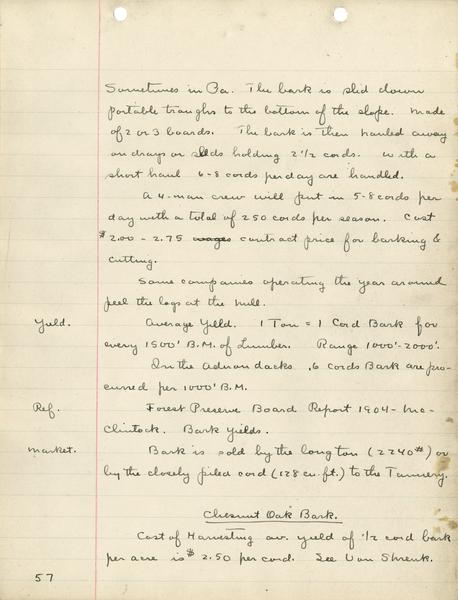 Sometimes in Pa. The bark is slid down
portable troughs to the bottom of the slope. Made
of 2 or 3 boards. The bark is then hauled away
on drays or sleds holding 2 1/2 cords. With a
short haul 6-8 cords per day are handled.
A 4-man crew will put in 5-8 cords per
day with a total of 250 cords per season. Cost
$2.00 - 2.75 wages contract price for barking &
cutting.
Some companies operating the year around
peel the logs at the mill.
Yield. Average Yield. 1 Ton = 1 Cord Bark for
every 1500' B.M. of Lumber. Range 1000'-2000'.
In the Adirondacks .6 cords Bark are pro-
cured per 1000' B.M.
Ref. Forest Preserve Board Report 1904 - Mc-
Clintock. Bark Yields.
Market. Bark is sold by the long ton (2240#) or
by the closely piled cord (128 cu. ft.) to the Tannery.
Chesnut Oak Bark.
Cost of Harvesting av. yield of 1/2 cord bark
per acre is $2.50 per cord. See Von Shrenk.
57